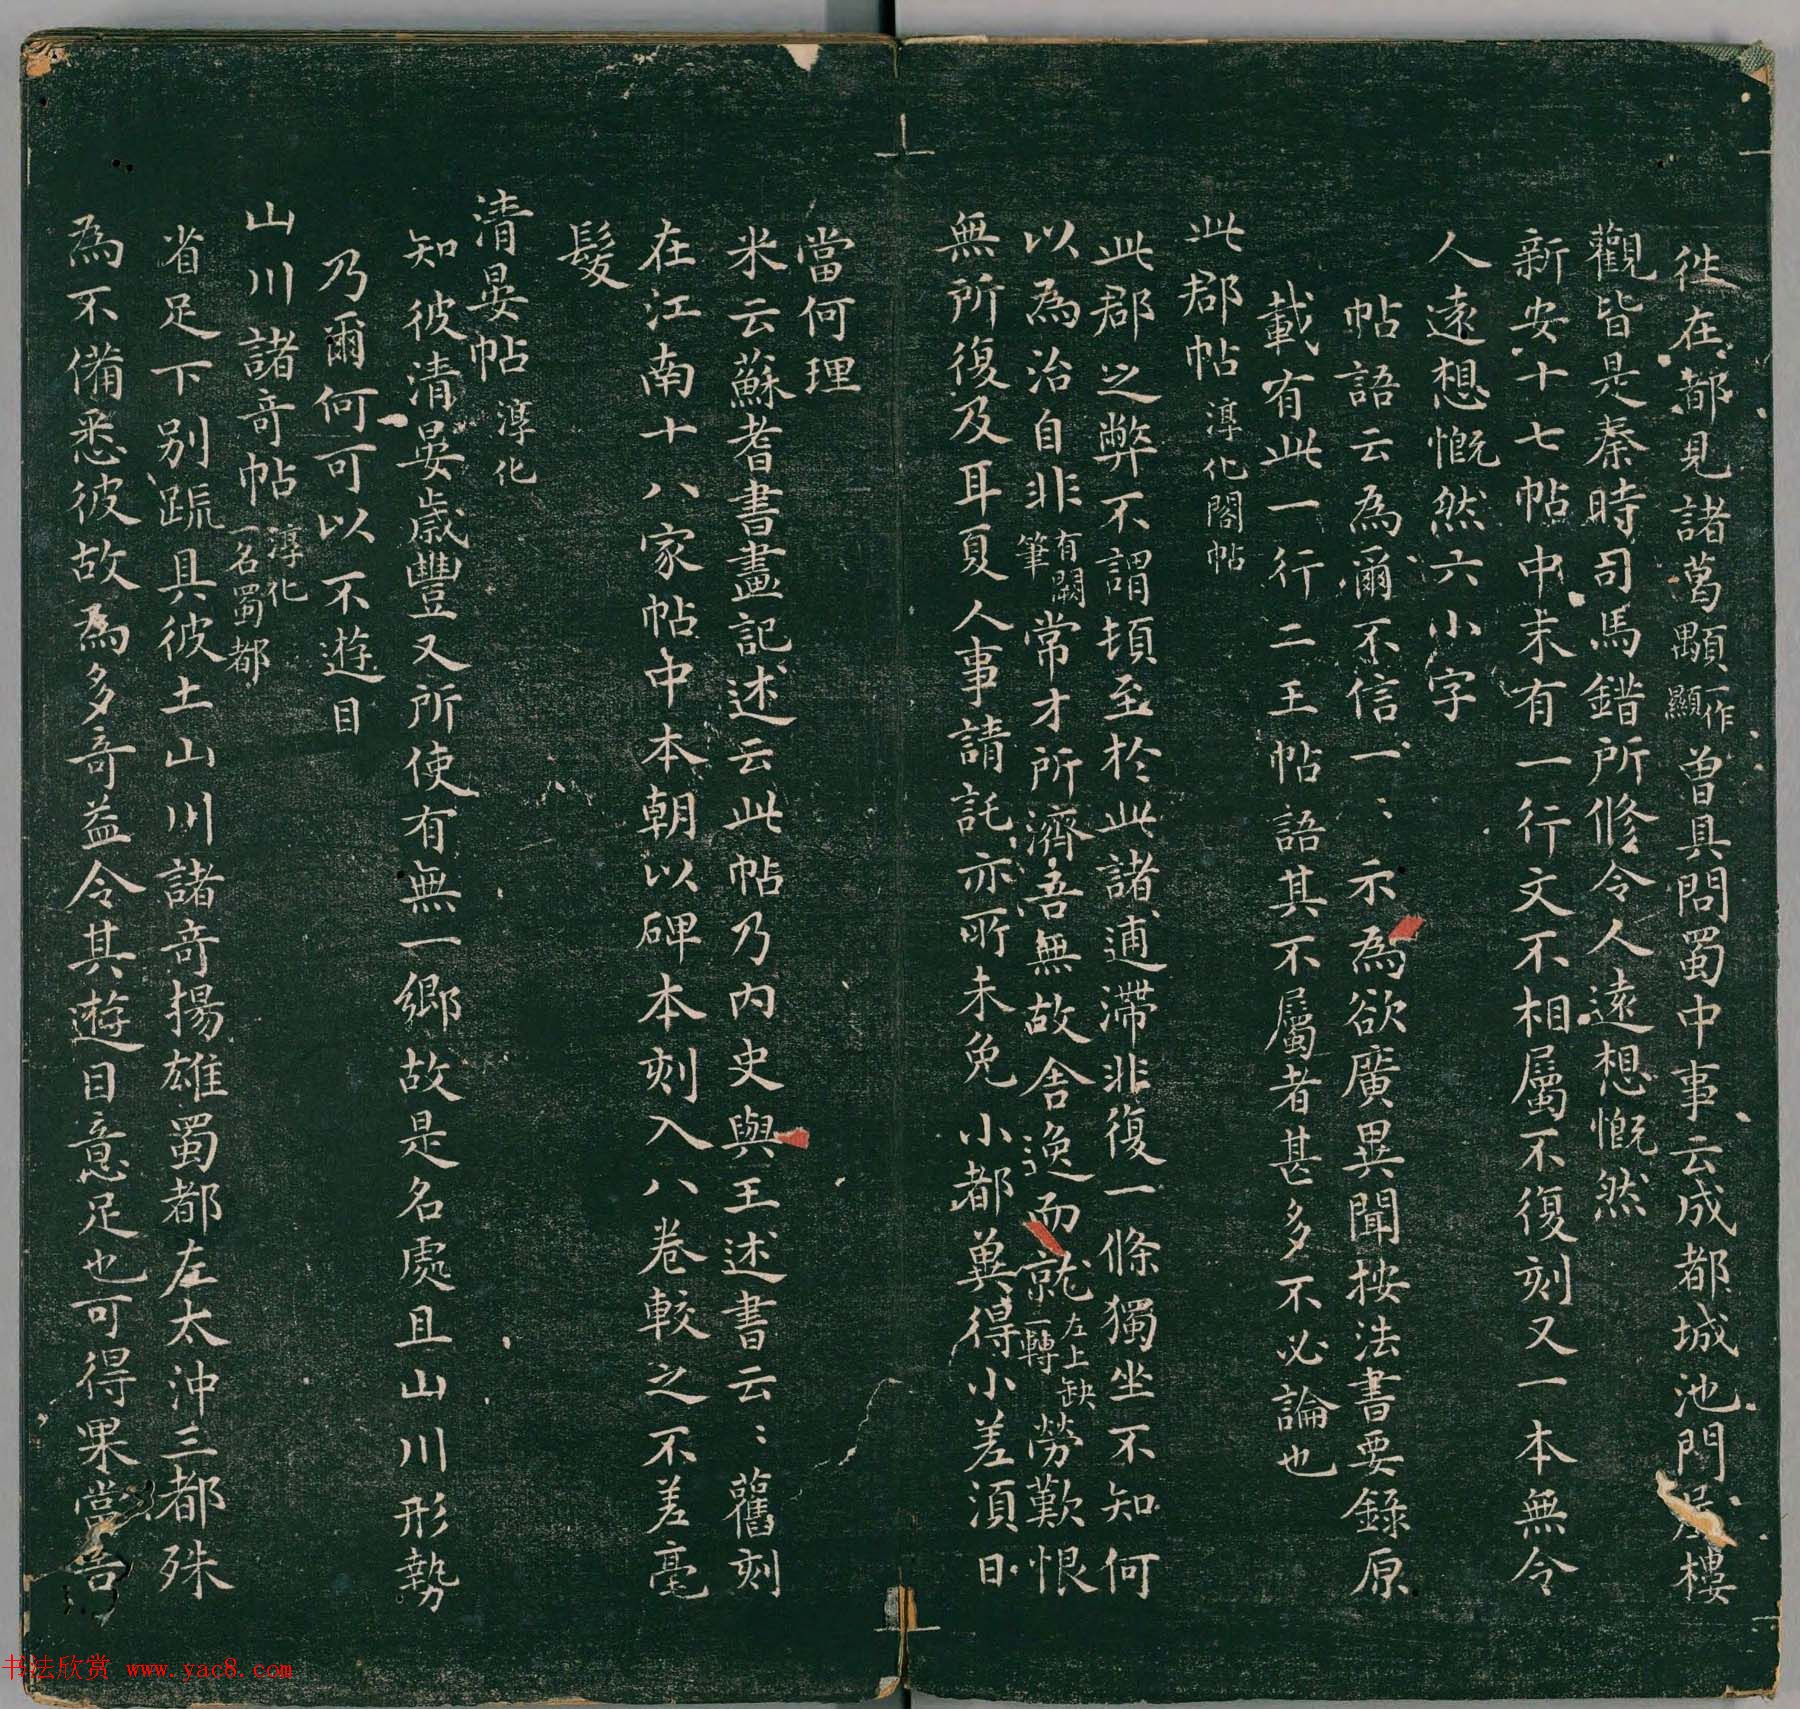 往在都見諸葛顒一作顯曾具問蜀中事云成都城池門屋樓
觀皆是秦時司馬錯所修令人遠想慨然
新安十七帖中未有一行文不相屬不復刻又一本無令
人遠想慨然六小字
帖語云為爾不信一〻示為欲廣異聞按法書要錄原
載有此一行二王帖語其不屬者甚多不必論也
此郡帖 淳化閣帖
此郡之弊不謂頓至於此諸逋滯非復一條獨坐不知何
以為治自非有闕筆常才所濟吾無故舍逸而就左上缺一轉勞歎恨
無所復及耳夏人事請託亦所未免小都冀得小差須日
當何理
米云蘇耆書畫記述云此帖乃內史與王述書云〻舊刻
在江南十八家帖中本朝以碑本刻入八卷較之不差毫
髮
清晏帖 淳化
知彼清晏歲豐又所使有無一鄉故是名處且山川形勢
乃爾何可以不遊目
山川諸奇帖 淳化一名蜀都
省足下別疏具彼土山川諸奇揚雄蜀都左太沖三都殊
為不備悉彼故為多奇益令其遊目意足也可得果當告
书法欣赏 www.yac8.com